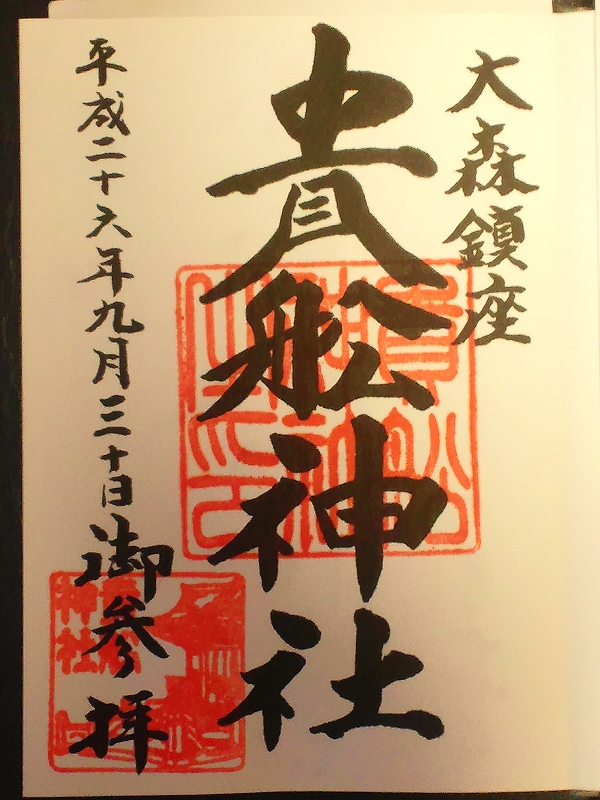 大森鎮座
貴舩神社
平成二十六年九月三十日
御参拝
神社